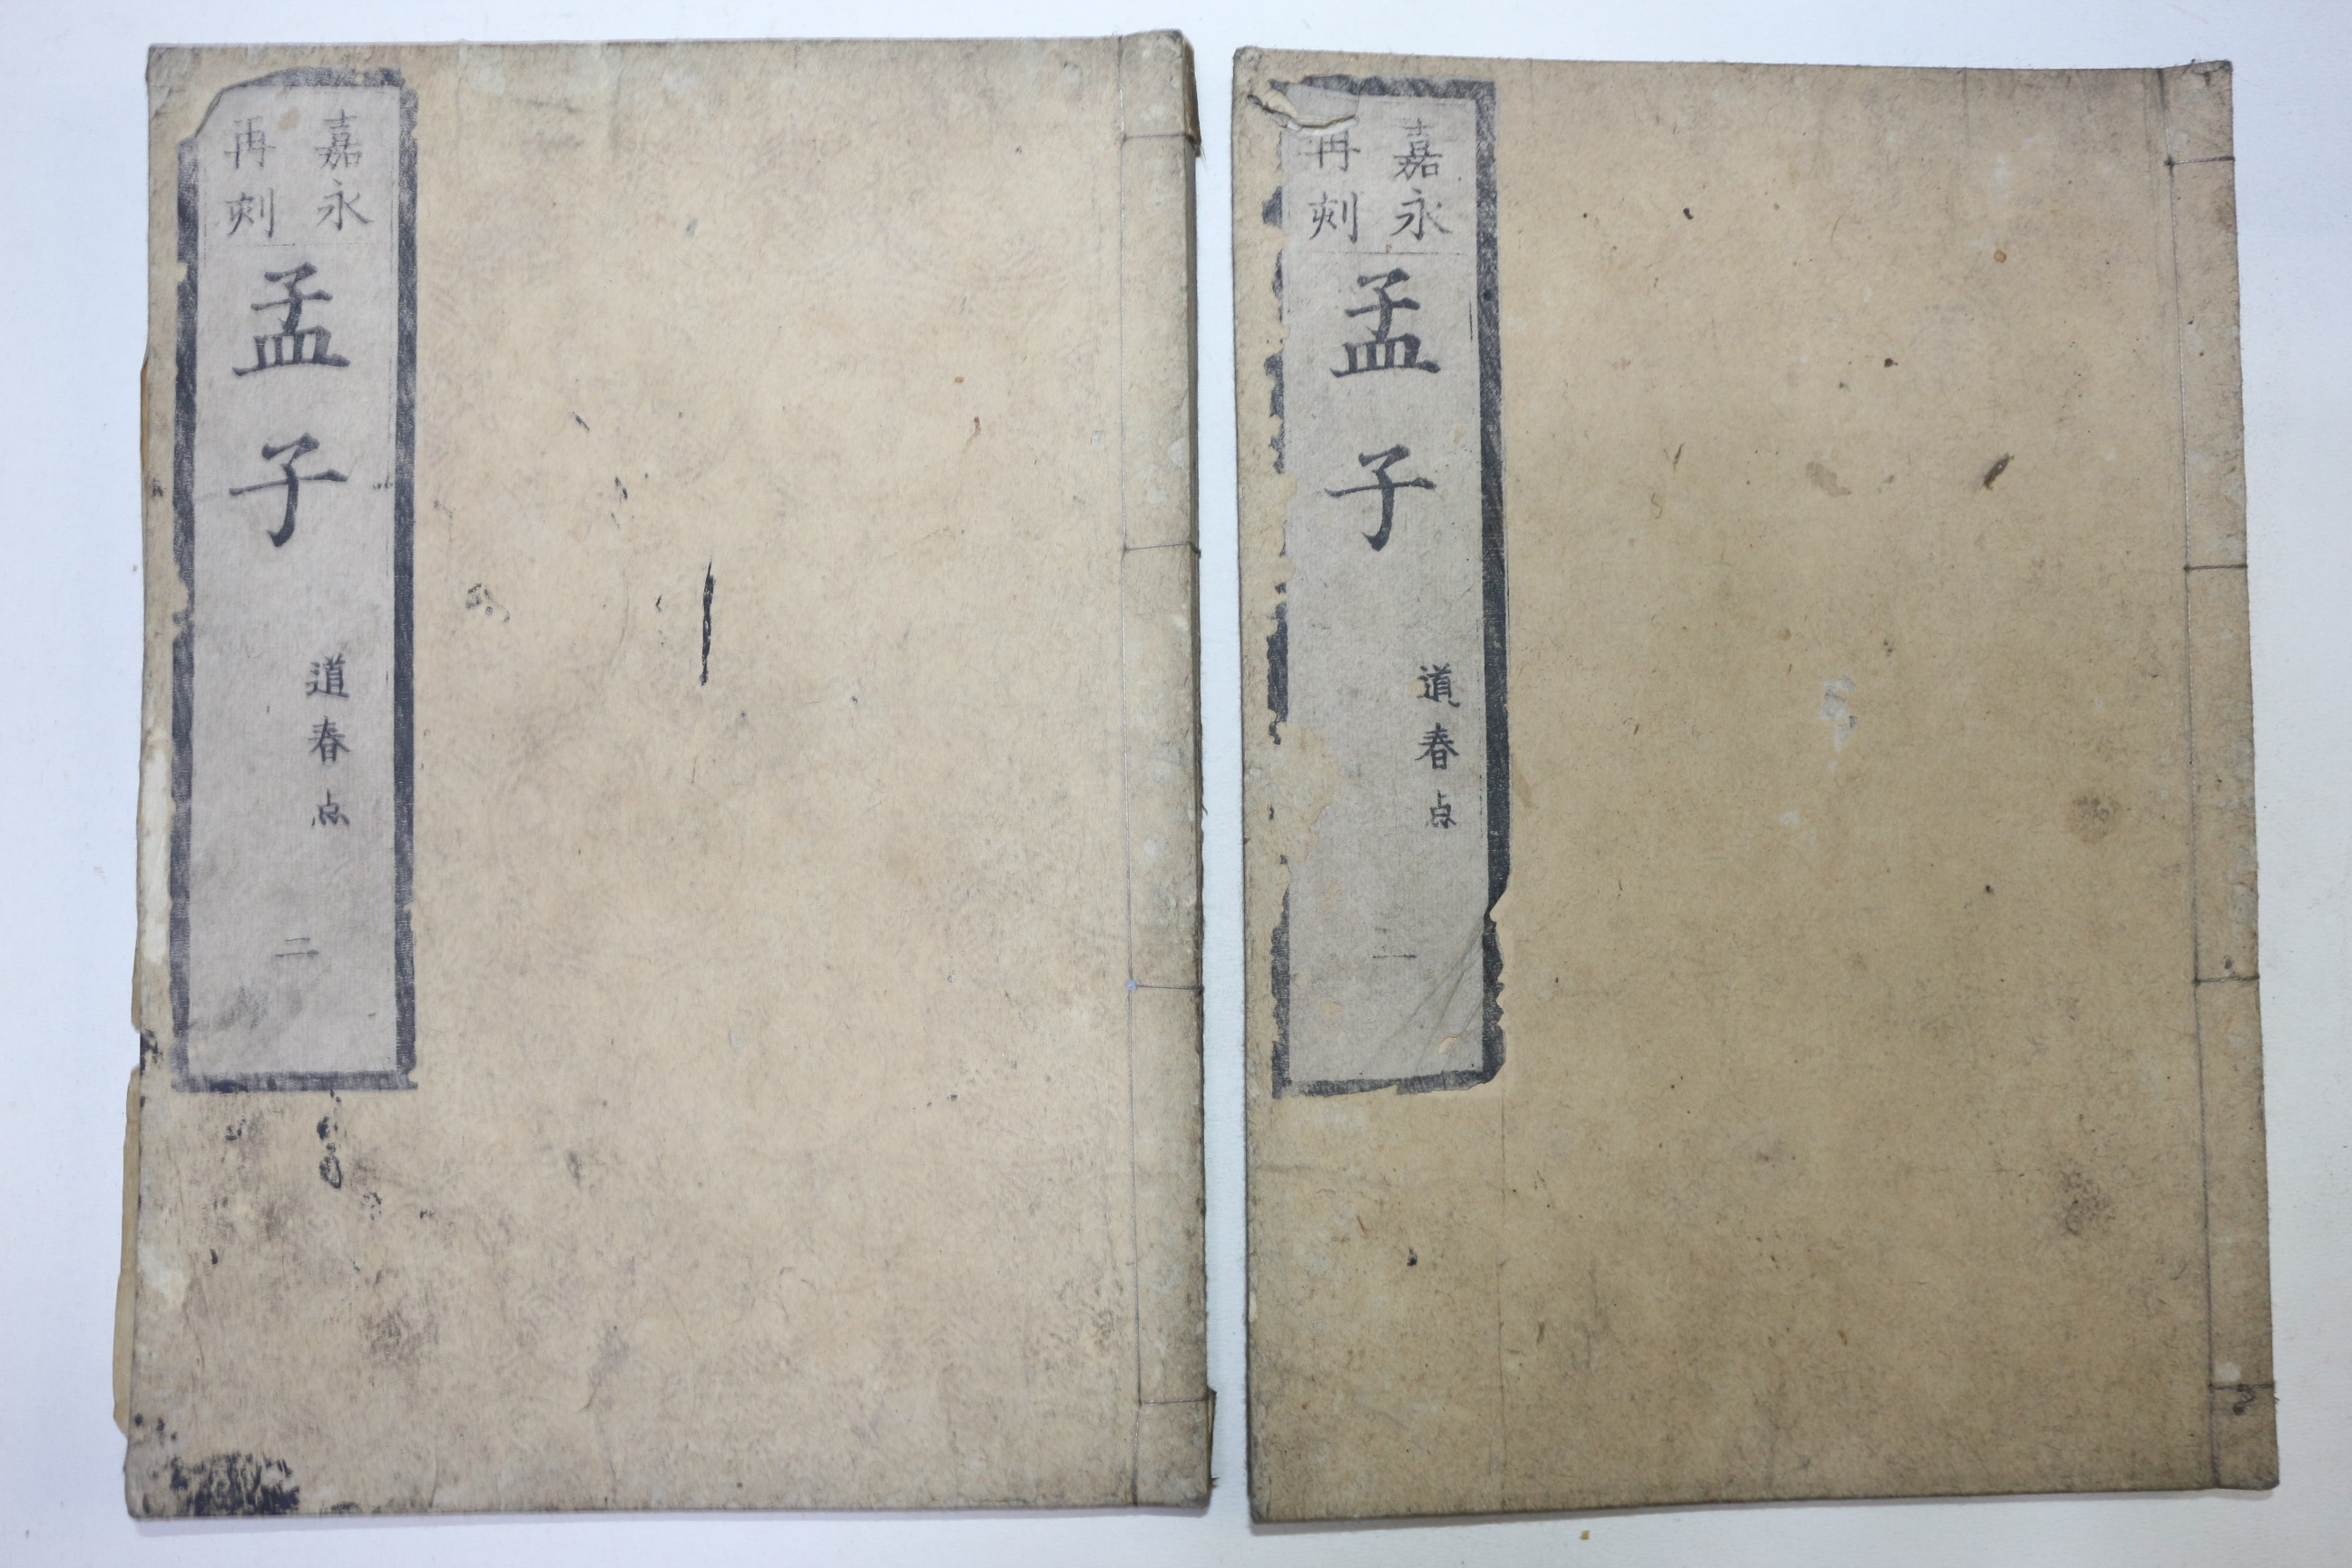 嘉永
再刻
孟子
道春点
二
嘉永
再刻
孟子
道春点